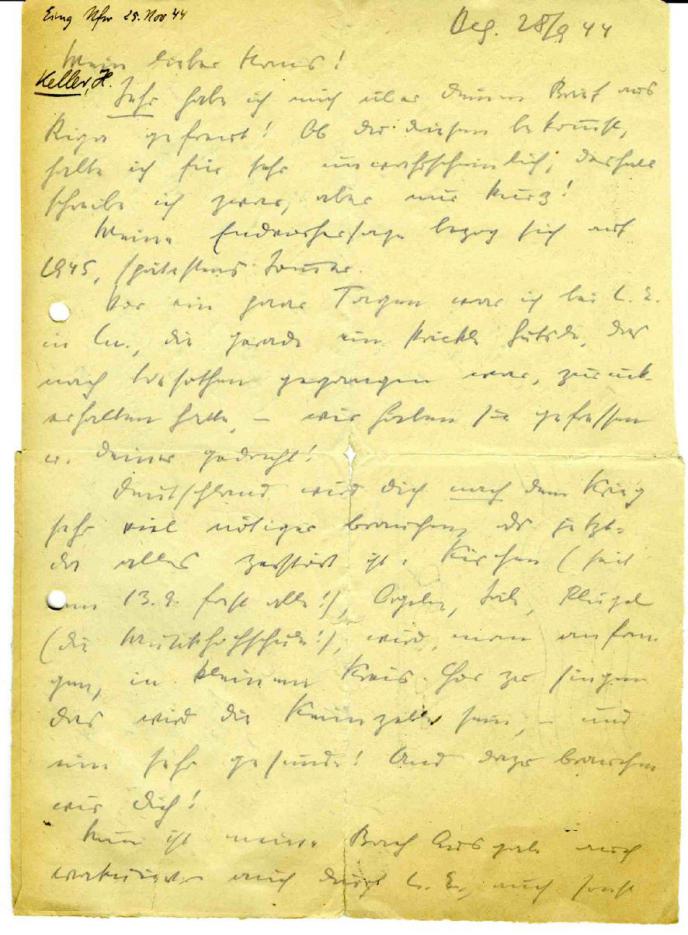 Eing Nfw 25. Nov 44
Deg. 28/9 44
Mein lieber Hans!
Keller, H.
Sehr habe ich mich über deinen Brief aus
Riga gefreut! Ob du diesen bekommst,
halte ich für sehr unwahrscheinlich; deshalb
schreibe ich zwar, aber nur kurz!
Meine Endvorhersage bezog sich auf
1945, spätestens Sommer.
Vor ein paar Tagen war ich bei L. E.
in Lu., die gerade ein Päckle, das
nach gegangen war, zurück-
erhalten hatte, – wir haben sie gegessen
u. deiner gedacht!
Deutschland wird dich nach dem Krieg
sehr viel nötiger brauchen, als jetzt.
da alles zerstört ist. Kirchen (seit
dem 13.9. fast alle!), Orgeln, Säle, Flügel
(die Musikhochschule!), wird man anfan-
gen, in kleinem Kreis Chor zu singen
das wird die Keimzelle sein, – und
eine sehr gesunde! Und dazu brauchen
wir dich!
Nun ist meine Bach Ausgabe auch
auch durch L. E., auch sonst